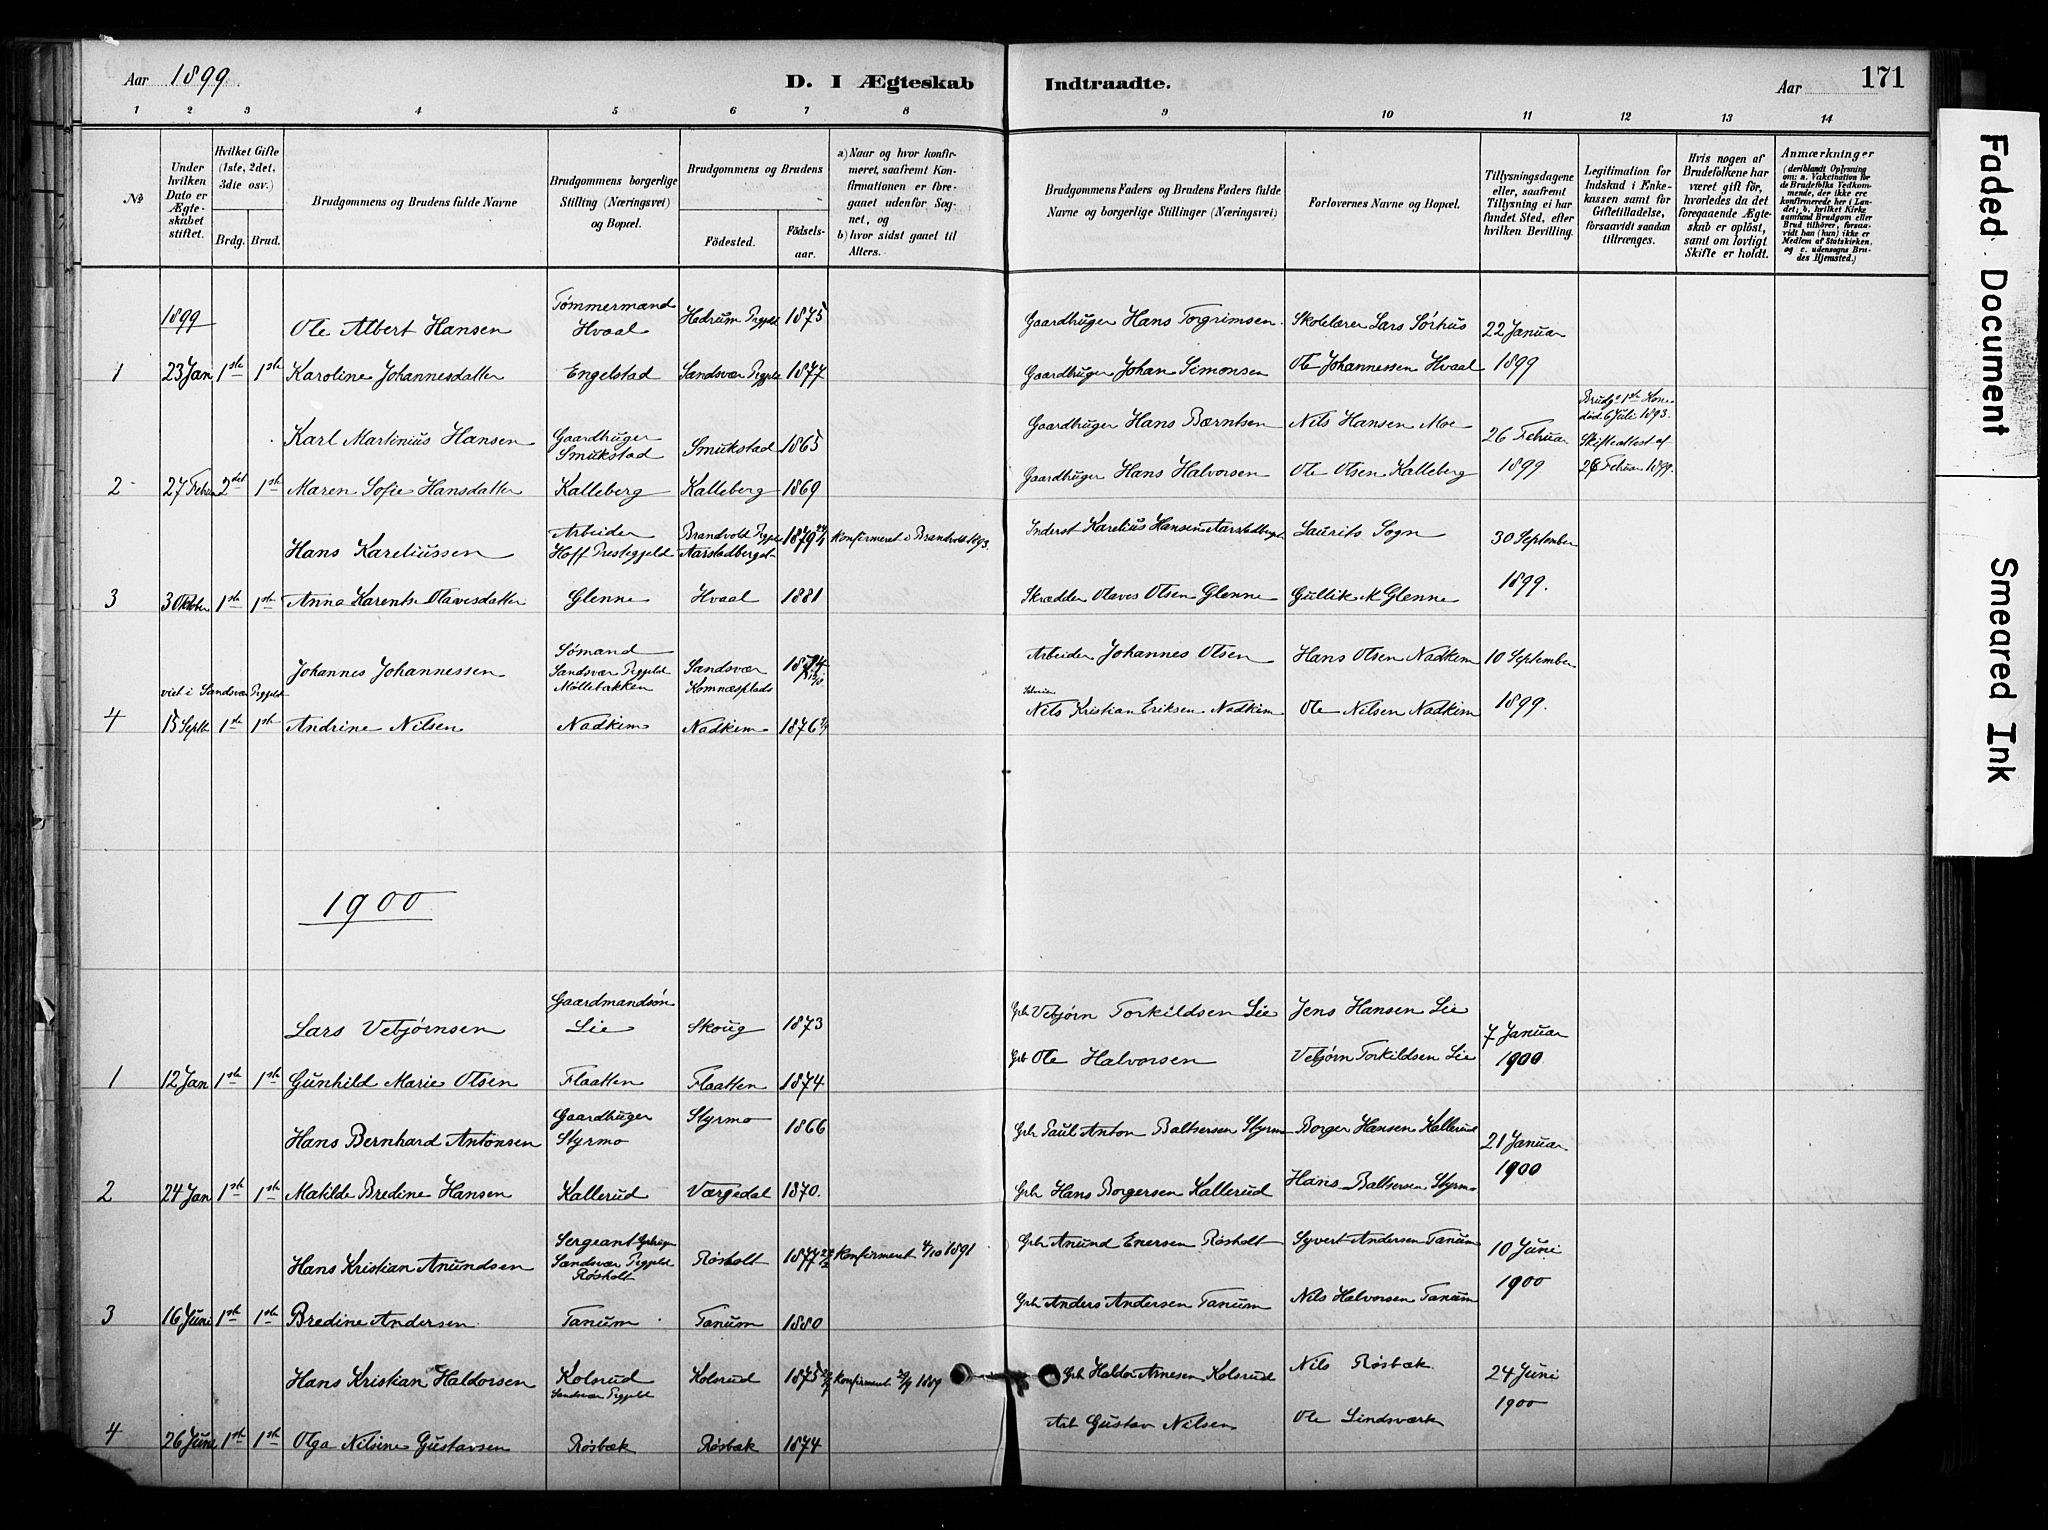 Aar 1899. D. I Ægteskab Indtraadte. Aar 171
1 2 3 4 5 6 7 8 9 10 11 12 13 14
No
Under hvilken Dato er Ægteskabet stiftet.
Hvilket Gifte (1ste, 2det, 3die osv.)
Brdg. Brud.
Brudgommens og Brudens fulde Navne
Brudgommens borgerlige Stilling (Næringsvei) og Bopæl.
Brudgommens og Brudens
Fødested. Fødselsaar.
a) Naar og hvor konfirmeret, saafremt Konfirmationen er foregaaet udenfor Sognet, og
b) hvor sidst gaaet til Alters.
Brudgommens Faders og Brudens Faders fulde Navne og borgerlige Stillinger (Næringsvei)
Forlovernes Navne og Bopæl.
Tillysningsdagene eller, saafremt Tillysning ei har fundet Sted, efter hvilken Bevilling.
Legitimation for Indskud i Enkekassen samt for Giftetilladelse, forsaavidt saadan tiltrænges.
Hvis nogen af Brudefolkene har været gift før, hvorledes da det foregaaende Ægteskab er opløst, samt om lovligt Skifte er holdt.
Anmærkninger
(deriblandt Oplysning om: a. Vakcination for de Brudefolks Vedkommende, der ikke ere konfirmerede her i Landet; b. hvilket Kirkesamfund Brudgom eller Brud tilhører, forsaavidt han (hun) ikke er Medlem af Statskirken, og c. udensogns Brudes Hjemsted.)
1899
Ole Albert Hansen Tømmermand Hvaal Hedrum Prgjeld 1875 Gaardbruger Hans Torgrimsen Skolelærer Lars Sørhus 22 Januar
1 23 Jan 1ste 1ste Karoline Johannesdatter Engelstad Sandsvær Prgjeld 1877 Gaardbruger Johan Simonsen Ole Johannessen Hvaal 1899
Karl Martinius Hansen Gaardbruger Smukstad Smukstad 1865 Gaardbruger Hans Bærntsen Nils Hansen Moe 26 Februar Brudg. 1ste Kone død 6 Juli 1893. Skifteattest af
2 27 Februar 2det 1ste Maren Sofie Hansdatter Kalleberg Kalleberg 1869 Gaardbruger Hans Halvorsen Ole Olsen Kalleberg 1899 Februar 1899.
Hans Kareliussen Arbeider Hoff Prestegjeld Brandvold Prgjeld Aarstadberget 1879 Konfirmeret i Brandvold 1893. Inderst Karelius Hansen Aarstadberget Laurits Sogn 30 September
3 3 Oktober 1ste 1ste Anna Karente Olavesdatter Glenne Hvaal 1881 Skrædder Olaves Olsen Glenne Gullik M Glenne 1899.
Johannes Johannessen Sømand Sandsvær Prgjeld Møllebakken Sandsvær Komnæsplads Arbeider Johannes Olsen Hans Olsen Nadkim 10 September
viet i Sandsvær Prgjeld
4 15 Septbr 1ste 1ste Andrine Nilsen Nadkim Nadkim 1876 Nils Kristian Eriksen Nadkim Ole Nilsen Nadkim 1899.
1900
Lars Vebjørnsen Gaardmandsøn Lie Skoug 1873 Grb Vebjørn Torkildsen Lie Jens Hansen Lie 7 Januar
1 12 Jan 1ste 1ste Gunhild Marie Olsen Flaatten Flaatten 1874 Grb Ole Halvorsen Vebjørn Torkildsen Lie 1900
Hans Bernhard Antonsen Gaardbruger Styrmo Styrmo 1866 Grb Paul Anton Baltsersen Styrmo Borger Hansen Kallerud 21 Januar
2 24 Jan 1ste 1ste Matilde Bredine Hansen Kallerud Værgedal 1870. Grb Hans Borgersen Kallerud Hans Baltsersen Styrmo 1900
Hans Kristian Anundsen Sergeant Gbruger Sandsvær Prgjeld Røsholt Røsholt 1877 Konfirmeret 4/10 1891 Grb Anund Enersen Røsholt Syvert Andersen Tanum 10 Juni
3 16 Juni 1ste 1ste Bredine Andersen Tanum Tanum 1880 Grb Anders Andersen Tanum Nils Halvorsen Tanum 1900
Hans Kristian Haldorsen Kolsrud Sandsvær Prgjeld Kolsrud 1875 Konfirmeret 29/9 1889 Grb Haldor Arnesen Kolsrud Nils Røsbæk 24 Juni
4 26 Juni 1ste 1ste Olga Nilsine Gustavsen Røsbæk Røsbæk 1874 Arb Gustav Nilsen Ole Lindsværk 1900
Faded Document
Smeared Ink